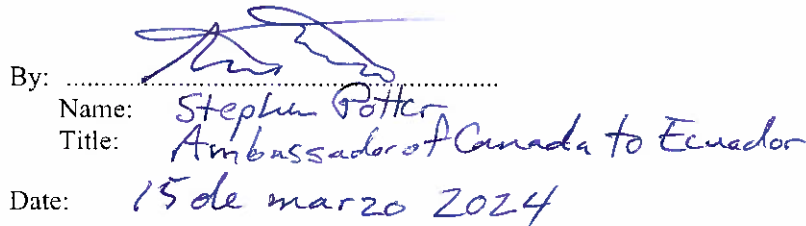 By: ........................................................
Name: Stephen Potter
Title: Ambassador of Canada to Ecuador
Date: 15 de marzo 2024